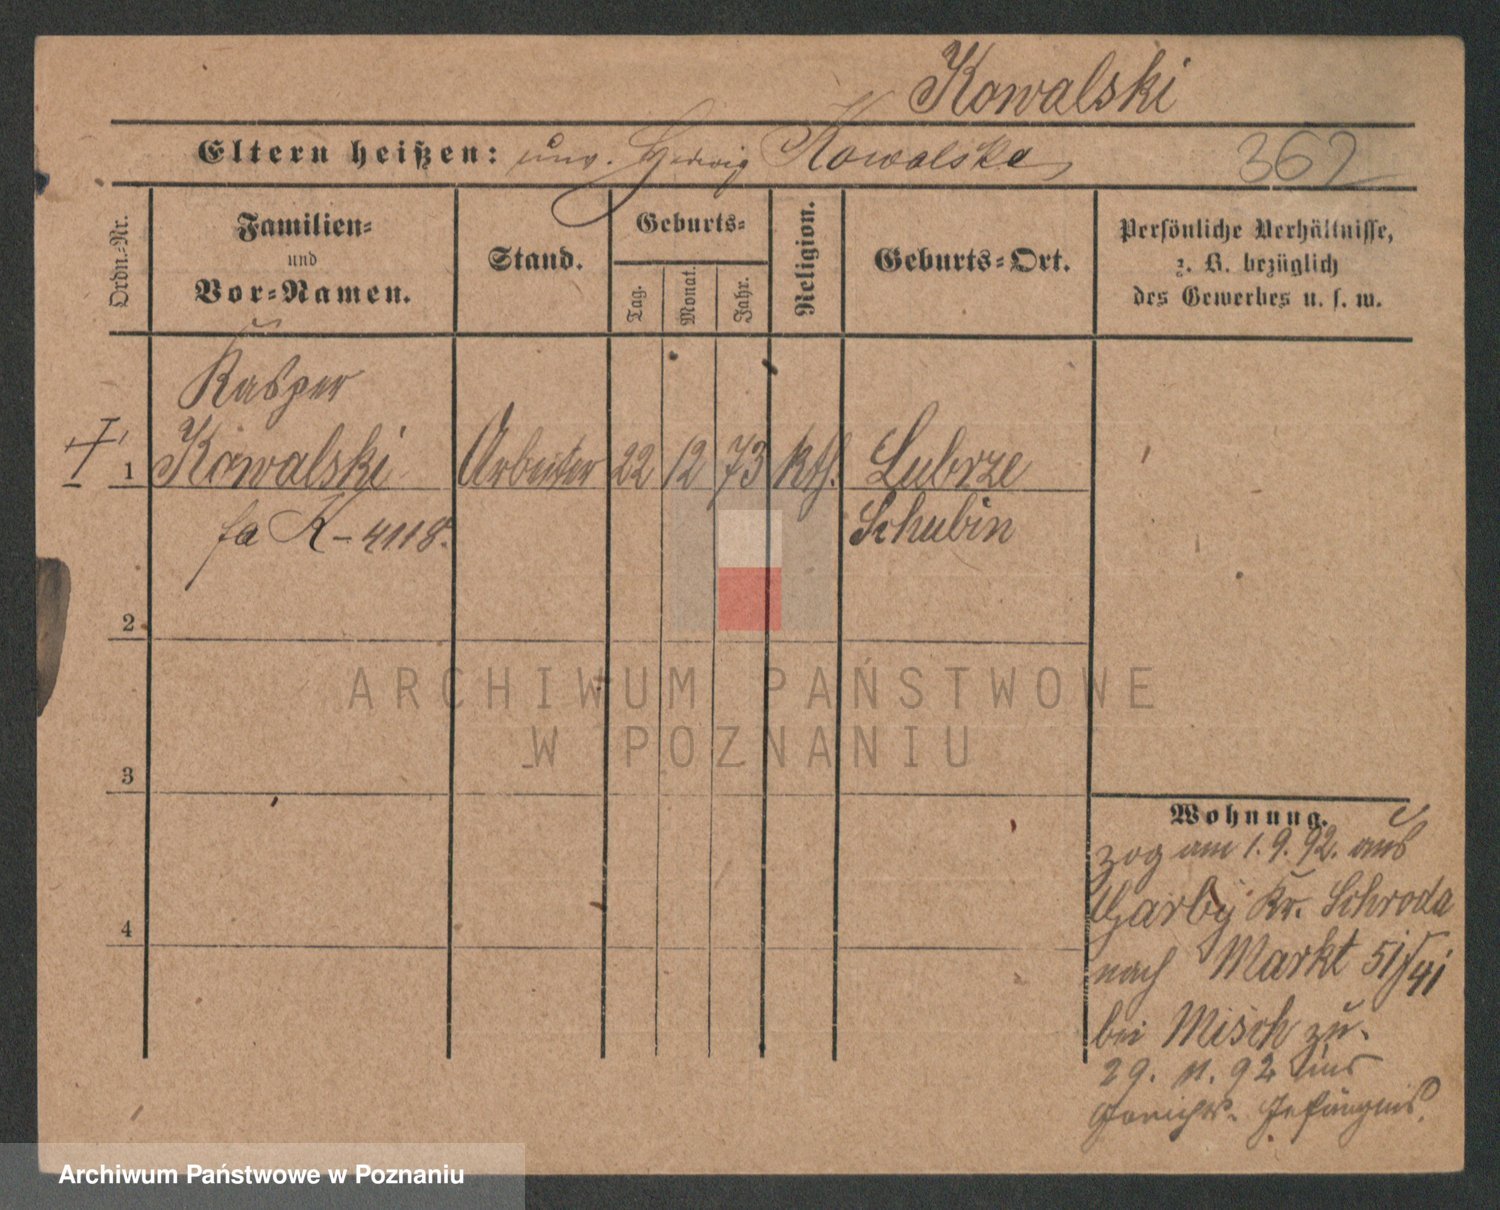 Kowalski
Eltern heißen: unv. Hedwig Kowalska
362
Ordn.-Nr.
Familien-
und
Vor-Namen.
Stand.
Geburts-
Tag.
Monat.
Jahr.
Religion.
Geburts-Ort.
Persönliche Verhältnisse,
z. B. bezüglich
des Gewerbes u. s. w.
Kasper
1 Kowalski Arbeiter 22 12 73 kth. Lubrze
fa K-4118. Schubin
2
3
4
ARCHIWUM PAŃSTWOWE
W POZNANIU
Wohnung.
zog am 1.9.92. aus
Garby Kr. Schroda
nach Markt 51/41
bei Misch zu.
29. 11. 92 ins
Gerichts-Gefängnis.
Archiwum Państwowe w Poznaniu